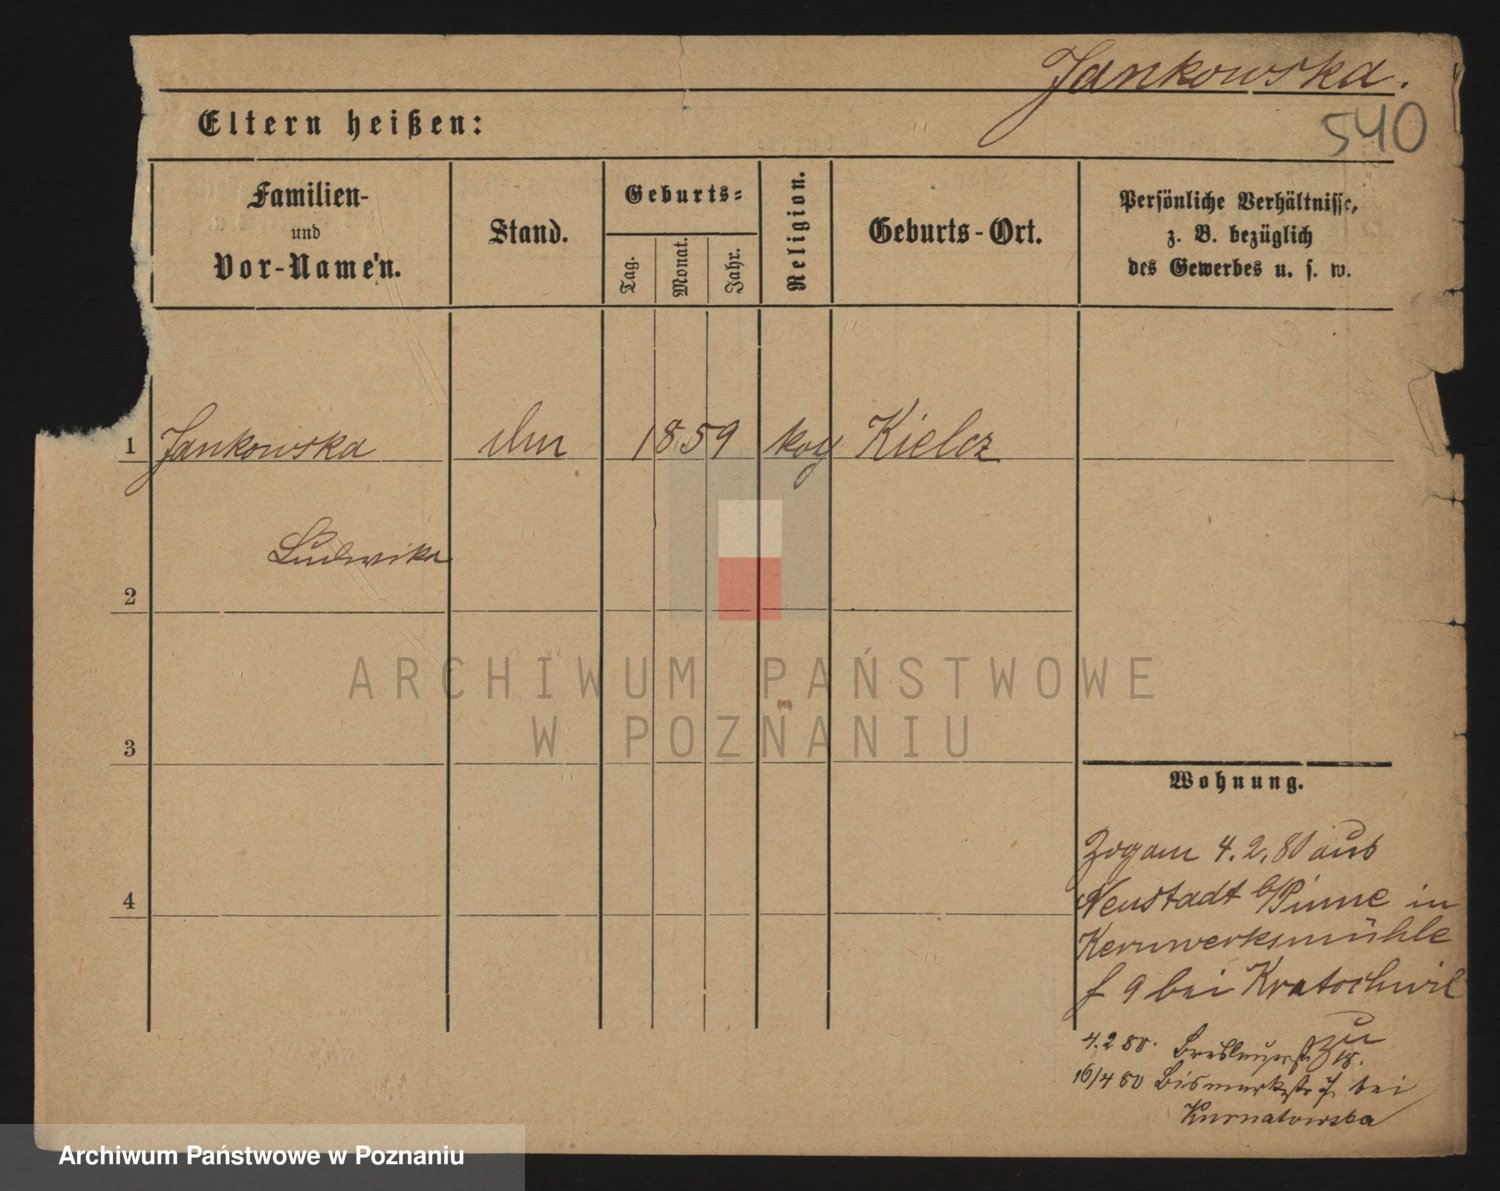 Jankowska.
540
Eltern heißen:
Familien-
und
Vor-Namen.
Stand.
Geburts-
Tag.
Monat.
Jahr.
Religion.
Geburts-Ort.
Persönliche Verhältnisse,
z. B. bezüglich
des Gewerbes u. s. w.
1 Jankowska 1859 Kielcz
Ludwika
2
3
4
ARCHIWUM PAŃSTWOWE
W POZNANIU
Wohnung.
Zog am 4.2.80 aus
Neustadt b/Pinne in
Kernwerksmühle
f 9 bei Kratochwil
zu
4.2 80. Breslauerstr 18.
16/4 80 Bismarkstr 7. bei
Kurnatowska
Archiwum Państwowe w Poznaniu